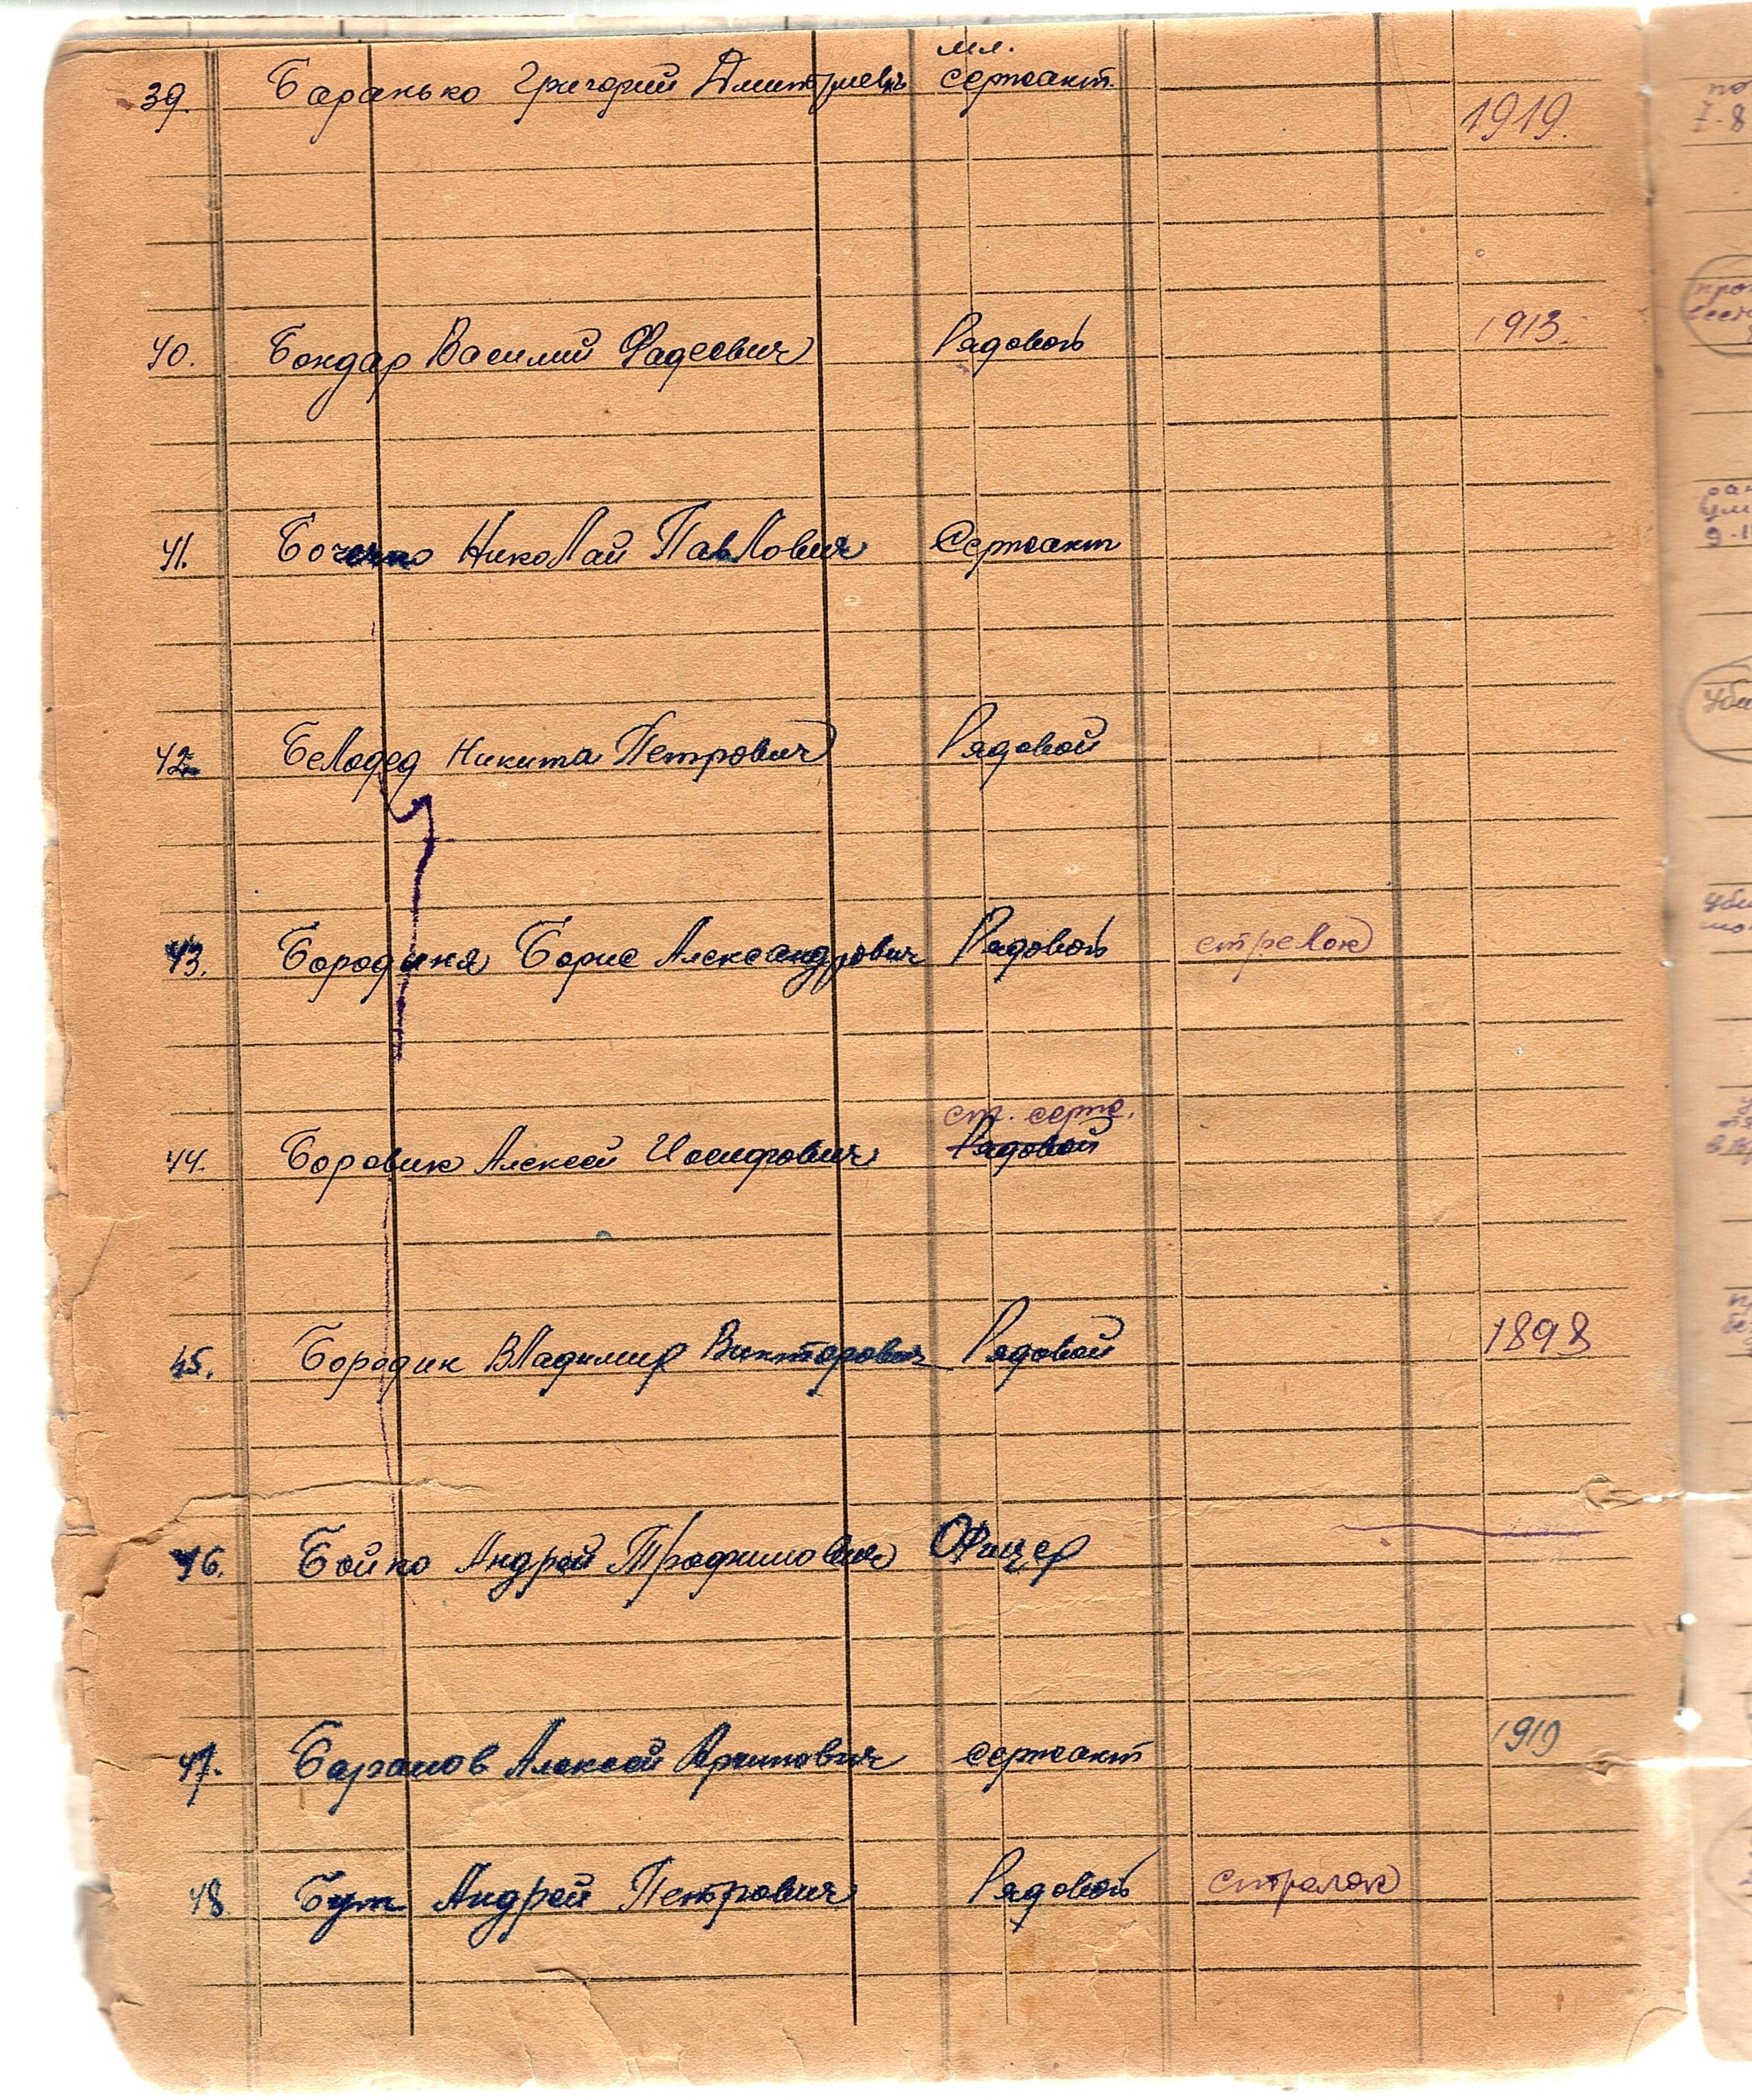 мл.
39. Баранько Григорий Дмитриевич сержант.
1919.
40. Бондар Василий Фадеевич Рядовой 1913.
41. Николай Павлович Сержант
42. Белодед Никита Петрович Рядовой
43. Бородиня Борис Александрович Рядовой стрелок
ст. серж.
44. Боровик Алексей Иосифович Рядовой
45. Бородин Владимир Викторович Рядовой 1898
46. Бойко Андрей Трофимович Офицер
47. Баранов Алексей Архипович сержант 1919
48. Бут Андрей Петрович Рядовой стрелок
7-8